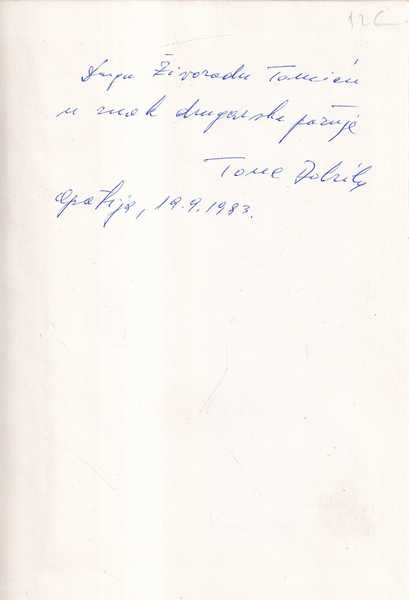 12C
Drugu Živoradu Tomiću
u znak drugarske pažnje
Tome
Opatija, 19.9.1983.